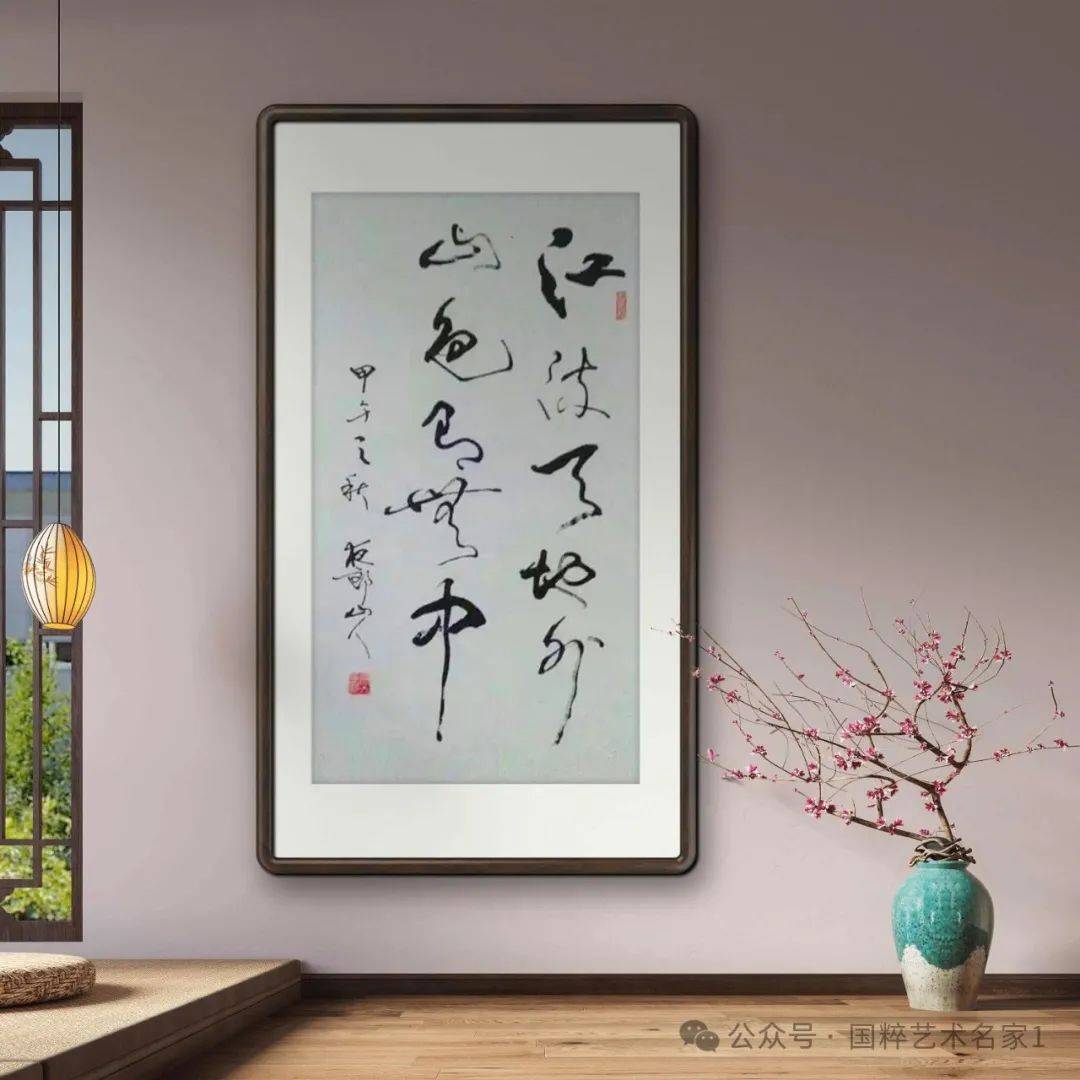 江流天地外
山色有無中
甲午之秋 夜郎山人
公众号 · 国粹艺术名家1